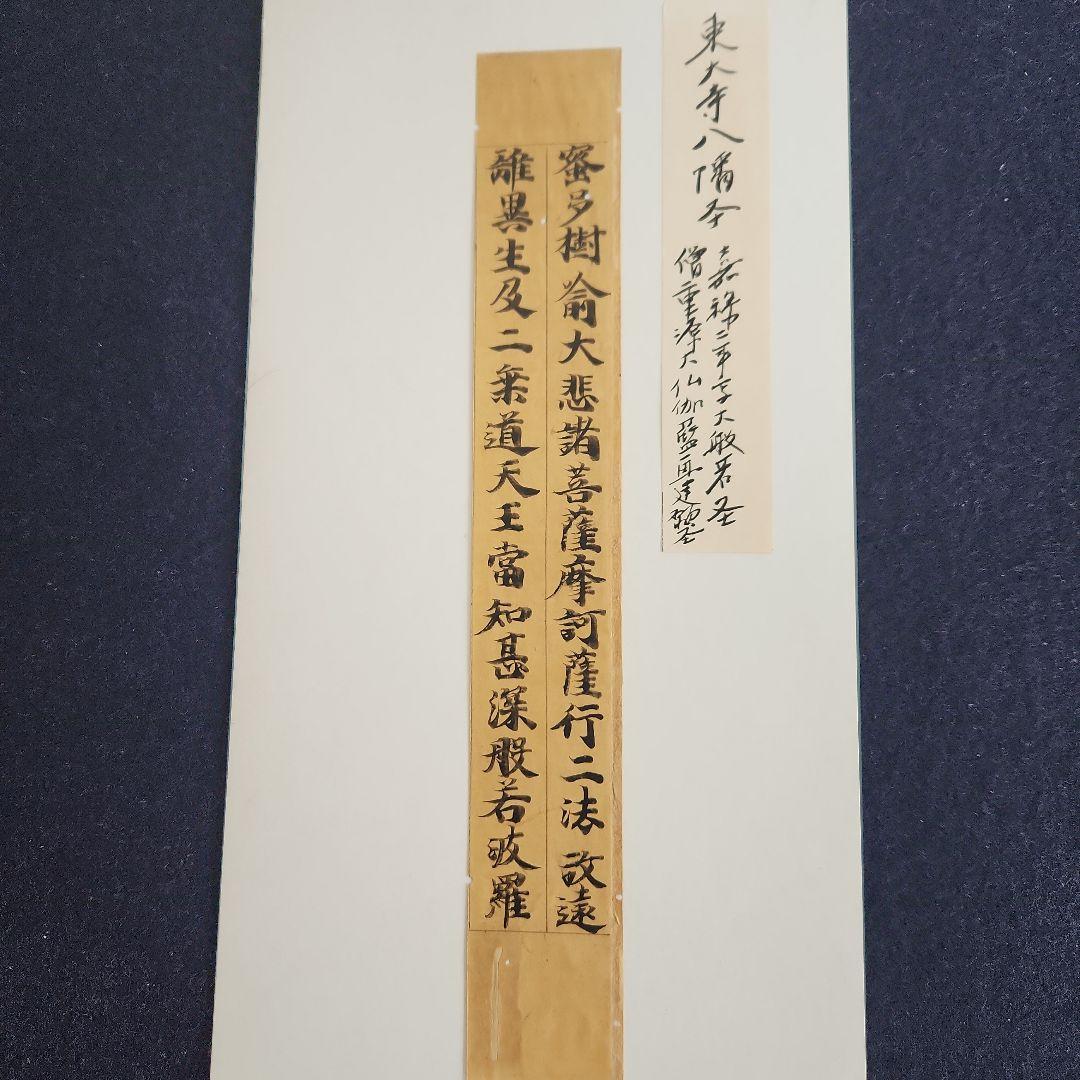 東大寺八幡圣
嘉禄二年字大般若圣
僧重源大仏伽藍再建願圣
蜜多樹俞大悲諸菩薩摩訶薩行二法故遠
離異生及二乗道天王當知甚深般若波羅